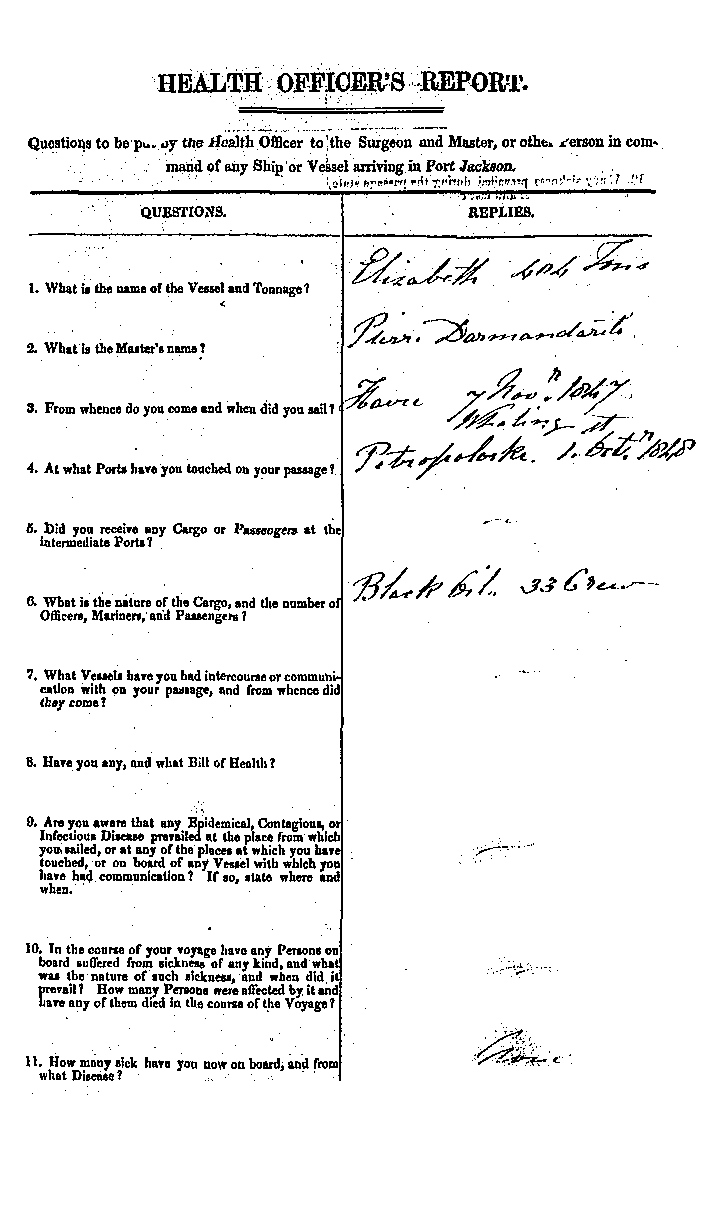 HEALTH OFFICER'S REPORT.
Questions to be put by the Health Officer to the Surgeon and Master, or other Person in com-
mand of any Ship or Vessel arriving in Port Jackson.
QUESTIONS.
REPLIES.
1. What is the name of the Vessel and Tonnage?
Elizabeth 404 Tons
2. What is the Master's name?
Pierre
3. From whence do you come and when did you sail?
Havre 7 Novr. 1847
Whaling at
4. At what Ports have you touched on your passage?
1. Octr. 1848
5. Did you receive any Cargo or Passengers at the
intermediate Ports?
6. What is the nature of the Cargo, and the number of
Officers, Mariners, and Passengers?
Black Oil. 33 Crew
7. What Vessels have you had intercourse or communi-
cation with on your passage, and from whence did
they come?
8. Have you any, and what Bill of Health?
9. Are you aware that any Epidemical, Contagious, or
Infectious Disease prevailed at the place from which
you sailed, or at any of the places at which you have
touched, or on board of any Vessel with which you
have had communication? If so, state where and
when.
10. In the course of your voyage have any Persons on
board suffered from sickness of any kind, and what
was the nature of such sickness, and when did it
prevail? How many Persons were affected by it and
have any of them died in the course of the Voyage?
11. How many sick have you now on board, and from
what Disease?
None